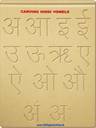 CARVING HINDI VOWELS
अ आ इ ई
उ ऊ ऋ ए
ऐ ओ औ
अं अः